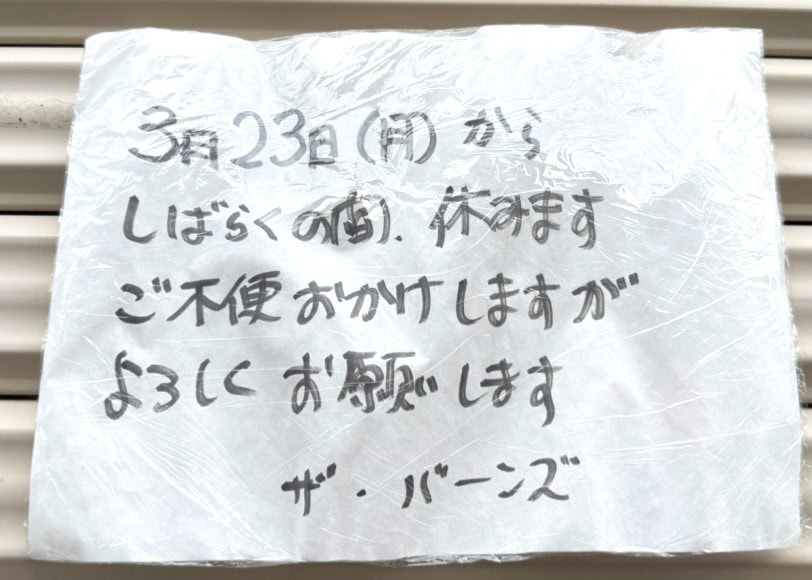 3月23日(月)から
しばらくの間、休みます
ご不便おかけしますが
よろしくお願いします
ザ・バーンズ